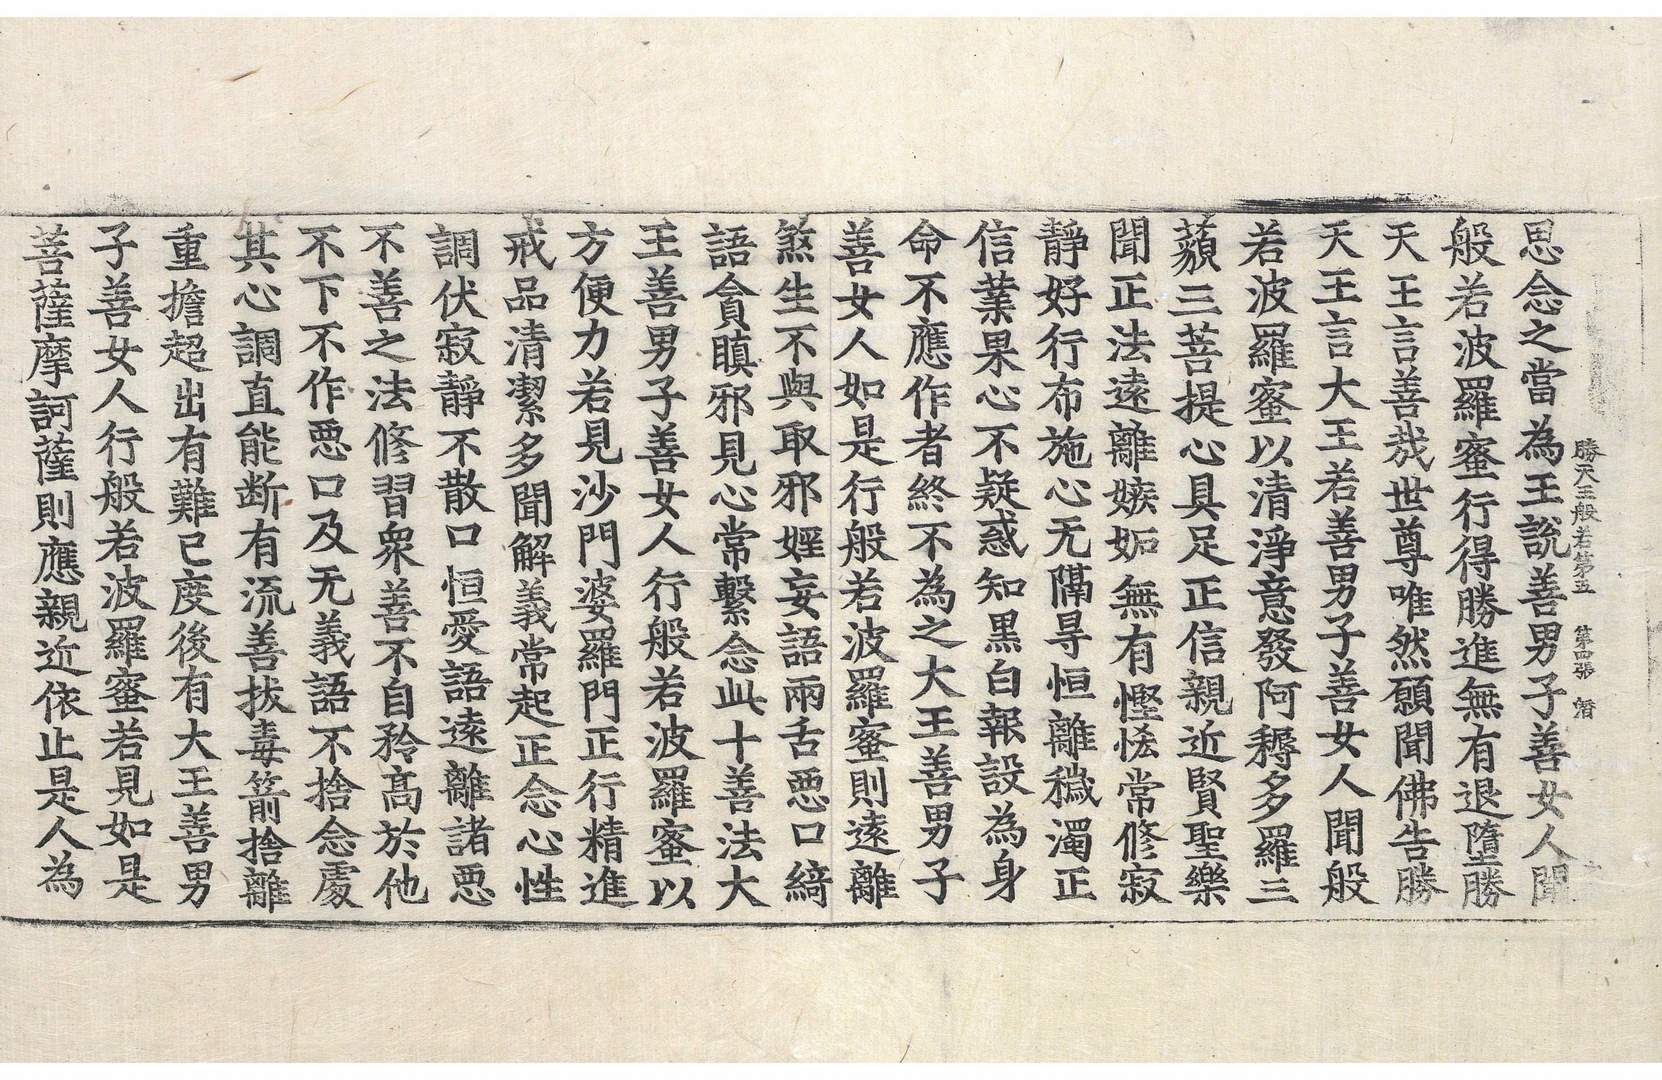 勝天王般若第五　第四張　潛
思念之當為王說善男子善女人聞
般若波羅蜜行得勝進無有退墮勝
天王言善㢤世尊唯然願聞佛告勝
天王言大王若善男子善女人聞般
若波羅蜜以清淨意發阿耨多羅三
藐三菩提心具足正信親近賢聖樂
聞正法遠離嫉妬無有慳悋常修寂
靜好行布施心无隔㝵恒離穢濁正
信業果心不疑惑知黑白報設為身
命不應作者終不為之大王善男子
善女人如是行般若波羅蜜則遠離
煞生不與取邪婬妄語兩舌惡口綺
語貪瞋邪見心常繫念此十善法大
王善男子善女人行般若波羅蜜以
方便力若見沙門婆羅門正行精進
戒品清潔多聞解義常起正念心性
調伏寂靜不散口恒愛語遠離諸惡
不善之法修習衆善不自矜高於他
不下不作惡口及无義語不捨念處
其心調直能断有流善拔毒箭捨離
重擔超出有難已度後有大王善男
子善女人行般若波羅蜜若見如是
菩薩摩訶薩則應親近依止是人為